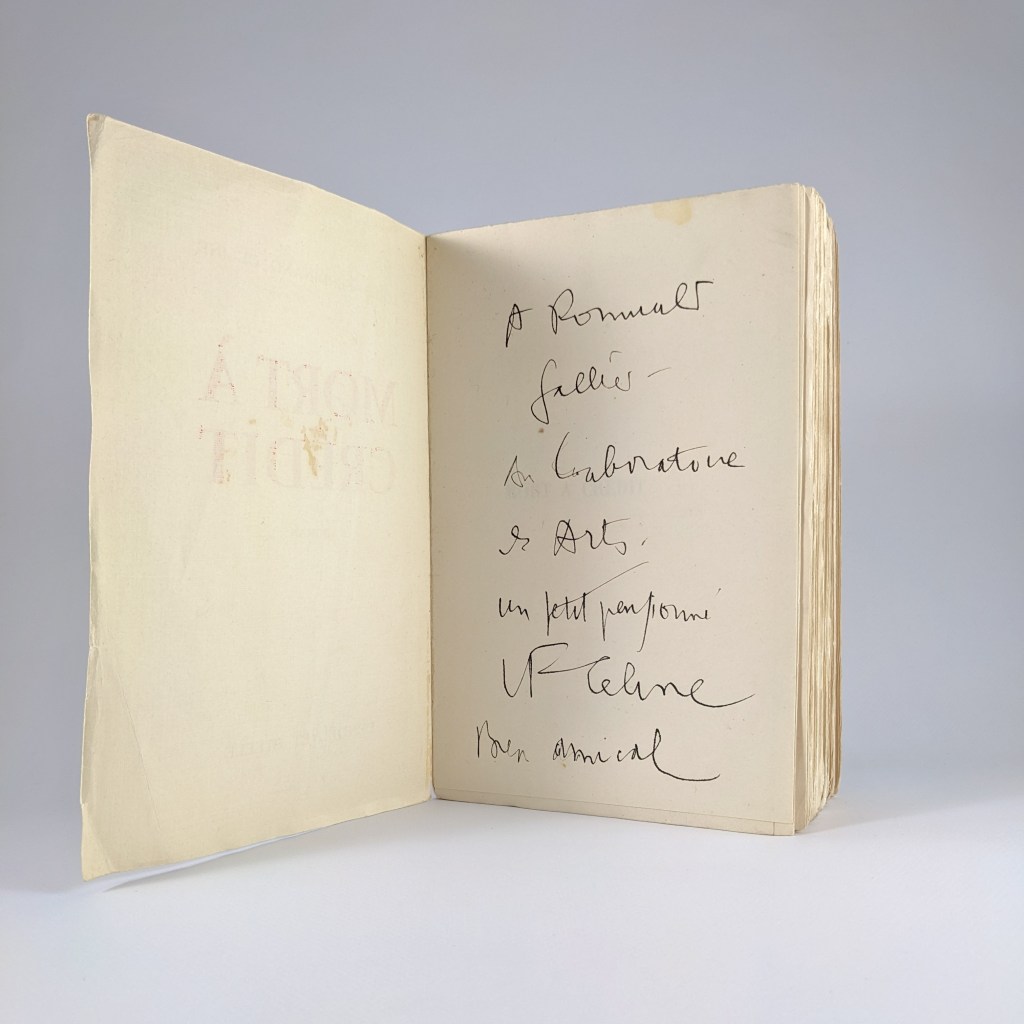 MORT À
CRÉDIT
A Romuald
Gallier -
Au Laboratoire
des Arts.
un petit pensionné
LF Celine
Bien amical